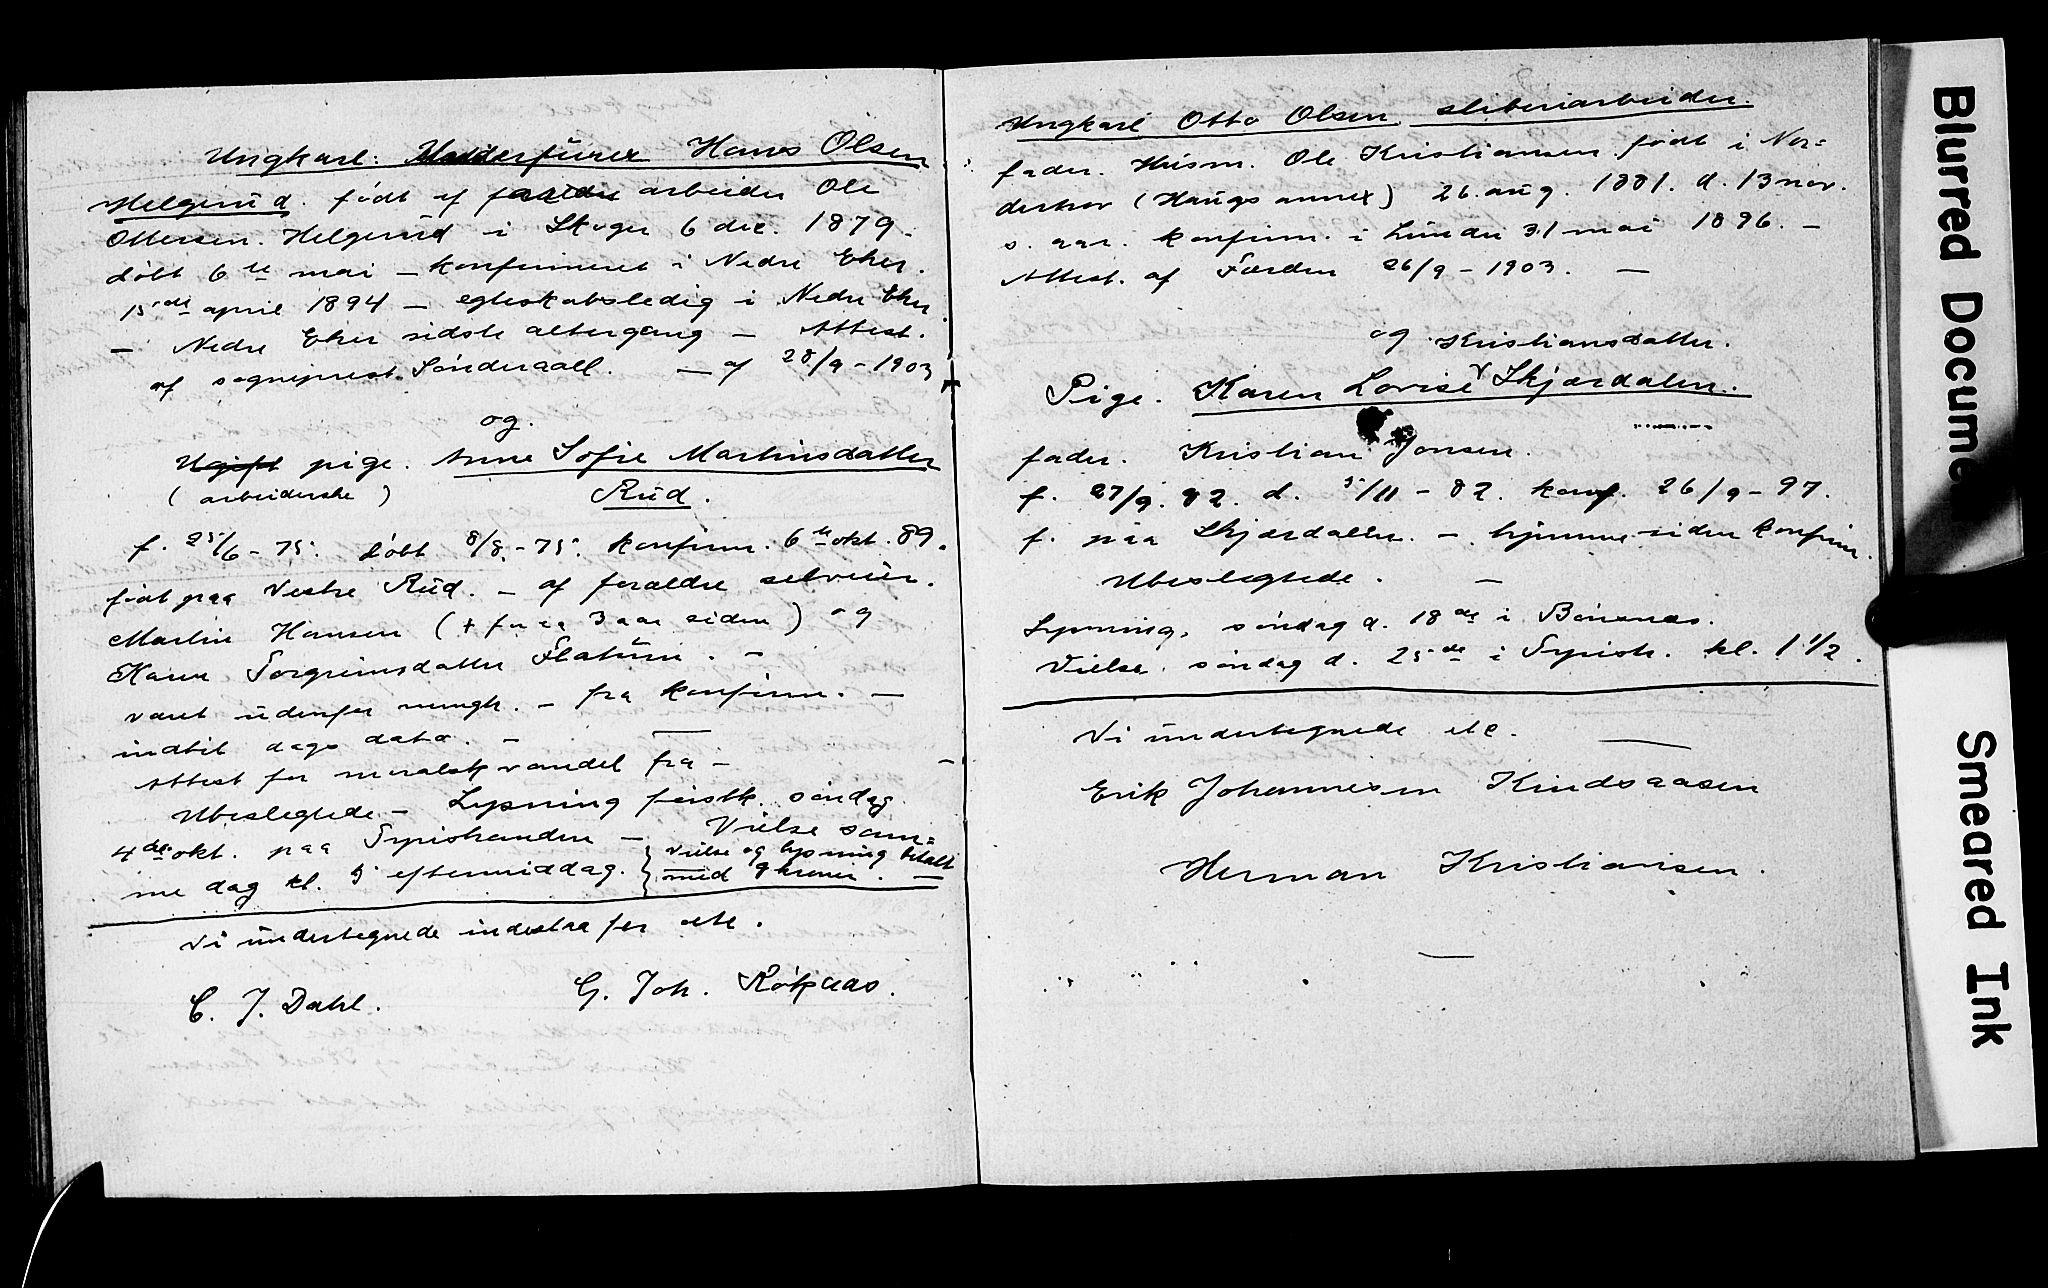 Ungkarl: Hans Olsen
Helgerud. født af arbeider Ole
Ottersen. Helgerud i Skoger 6 dec. 1879.
døbt 6te mai – konfirmeret i Nedre Eker.
15de april 1894 – egteskabsledig i Nedre Eker.
– Nedre Eker sidste altergang – Attest.
af sogneprest. Sønderaall. – af 28/9 – 1903
og.
Ugift pige. Anne Sofie Martinsdatter
(arbeiderske) Rud.
f. 25/6 – 75. døbt 8/8. – 75. konfirm. 6te okt. 89.
født paa Vestre Rud. – af forældre selveier.
Martin Hansen (+ for ca 3 aar siden) og
Karen Torgrimsdatter Flatum. –
været udenfor menigh. – fra konfirm. –
indtil dags dato. –
Attest for moralsk vandel fra – –
Ubeslegtede – Lysning førstk. søndag
4de okt. paa Tyristranden – Vielse sam=
me dag kl. 5 eftermiddag. { vielse og lysning betalt
med 9 kroner. –
Vi undertegnede indestaa for etc.
C. J. Dahl. G. Joh. Røksaas.
Ungkarl Otto Olsen sliberiarbeider.
fader. Husm. Ole Kristiansen født i Nor=
derhov (Haugs annex) 26. aug. 1881. d. 13 nov.
s. aar. konfirm. i Lunder 31 mai 1896. –
Attest. af Færden 26/9 – 1903. –
og Kristiansdatter.
Pige. Karen Lovise v Skjærdalen.
fader. Kristian Jonsen.
f. 27/9. 82. d. 5/11 – 82. konf. 26/9 – 97.
f. paa Skjærdalen. – hjemme siden konfirm.
Ubeslegtede. –
Lysning, søndag d. 18de i Bønsnes.
Vielse. søndag d. 25de i Tyristr. kl. 1 1/2.
Vi undertegnede etc. –
Erik Johannesen Kindsaasen
Herman Kristiansen.
Blurred Docume
Smeared Ink